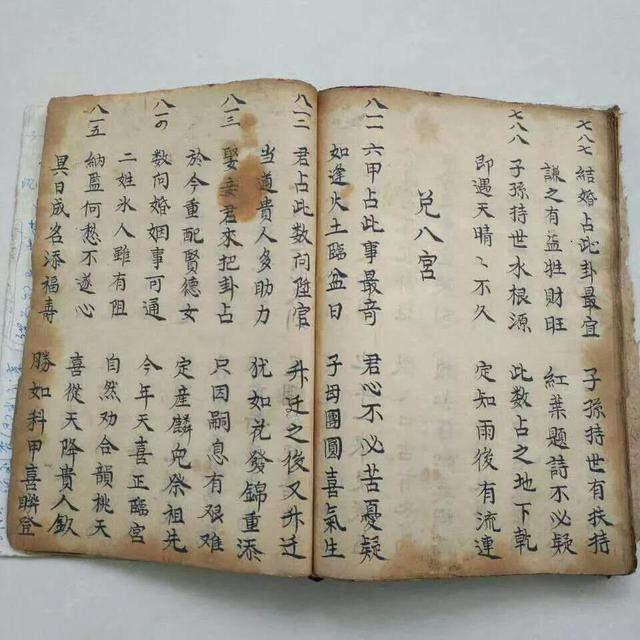 七八七 結婚占此卦最宜 子孫持世有扶持
謙之有益牲財旺 紅葉題詩不必疑
七八八 子孫持世水根源 此數占之地下乾
即遇天晴〻不久 定知雨後有流連
兑八宮
八一一 六甲占此事最奇 君心不必苦憂疑
如逢火土臨盆日 子母團圓喜氣生
八一二 君占此数向陞官 升迁之後又升迁
当道貴人多助力 犹如花發錦重添
八一三 娶妾君來把卦占 只因嗣息有艰难
於今重配賢德女 定産麟兒祭祖先
八一四 数向婚姻事可通 今年天喜正臨宮
二姓氷人雖有阻 自然劝合韻桃夭
八一五 納监何愁不遂心 喜從天降貴人欽
異日成名添福壽 勝如科甲喜聯登